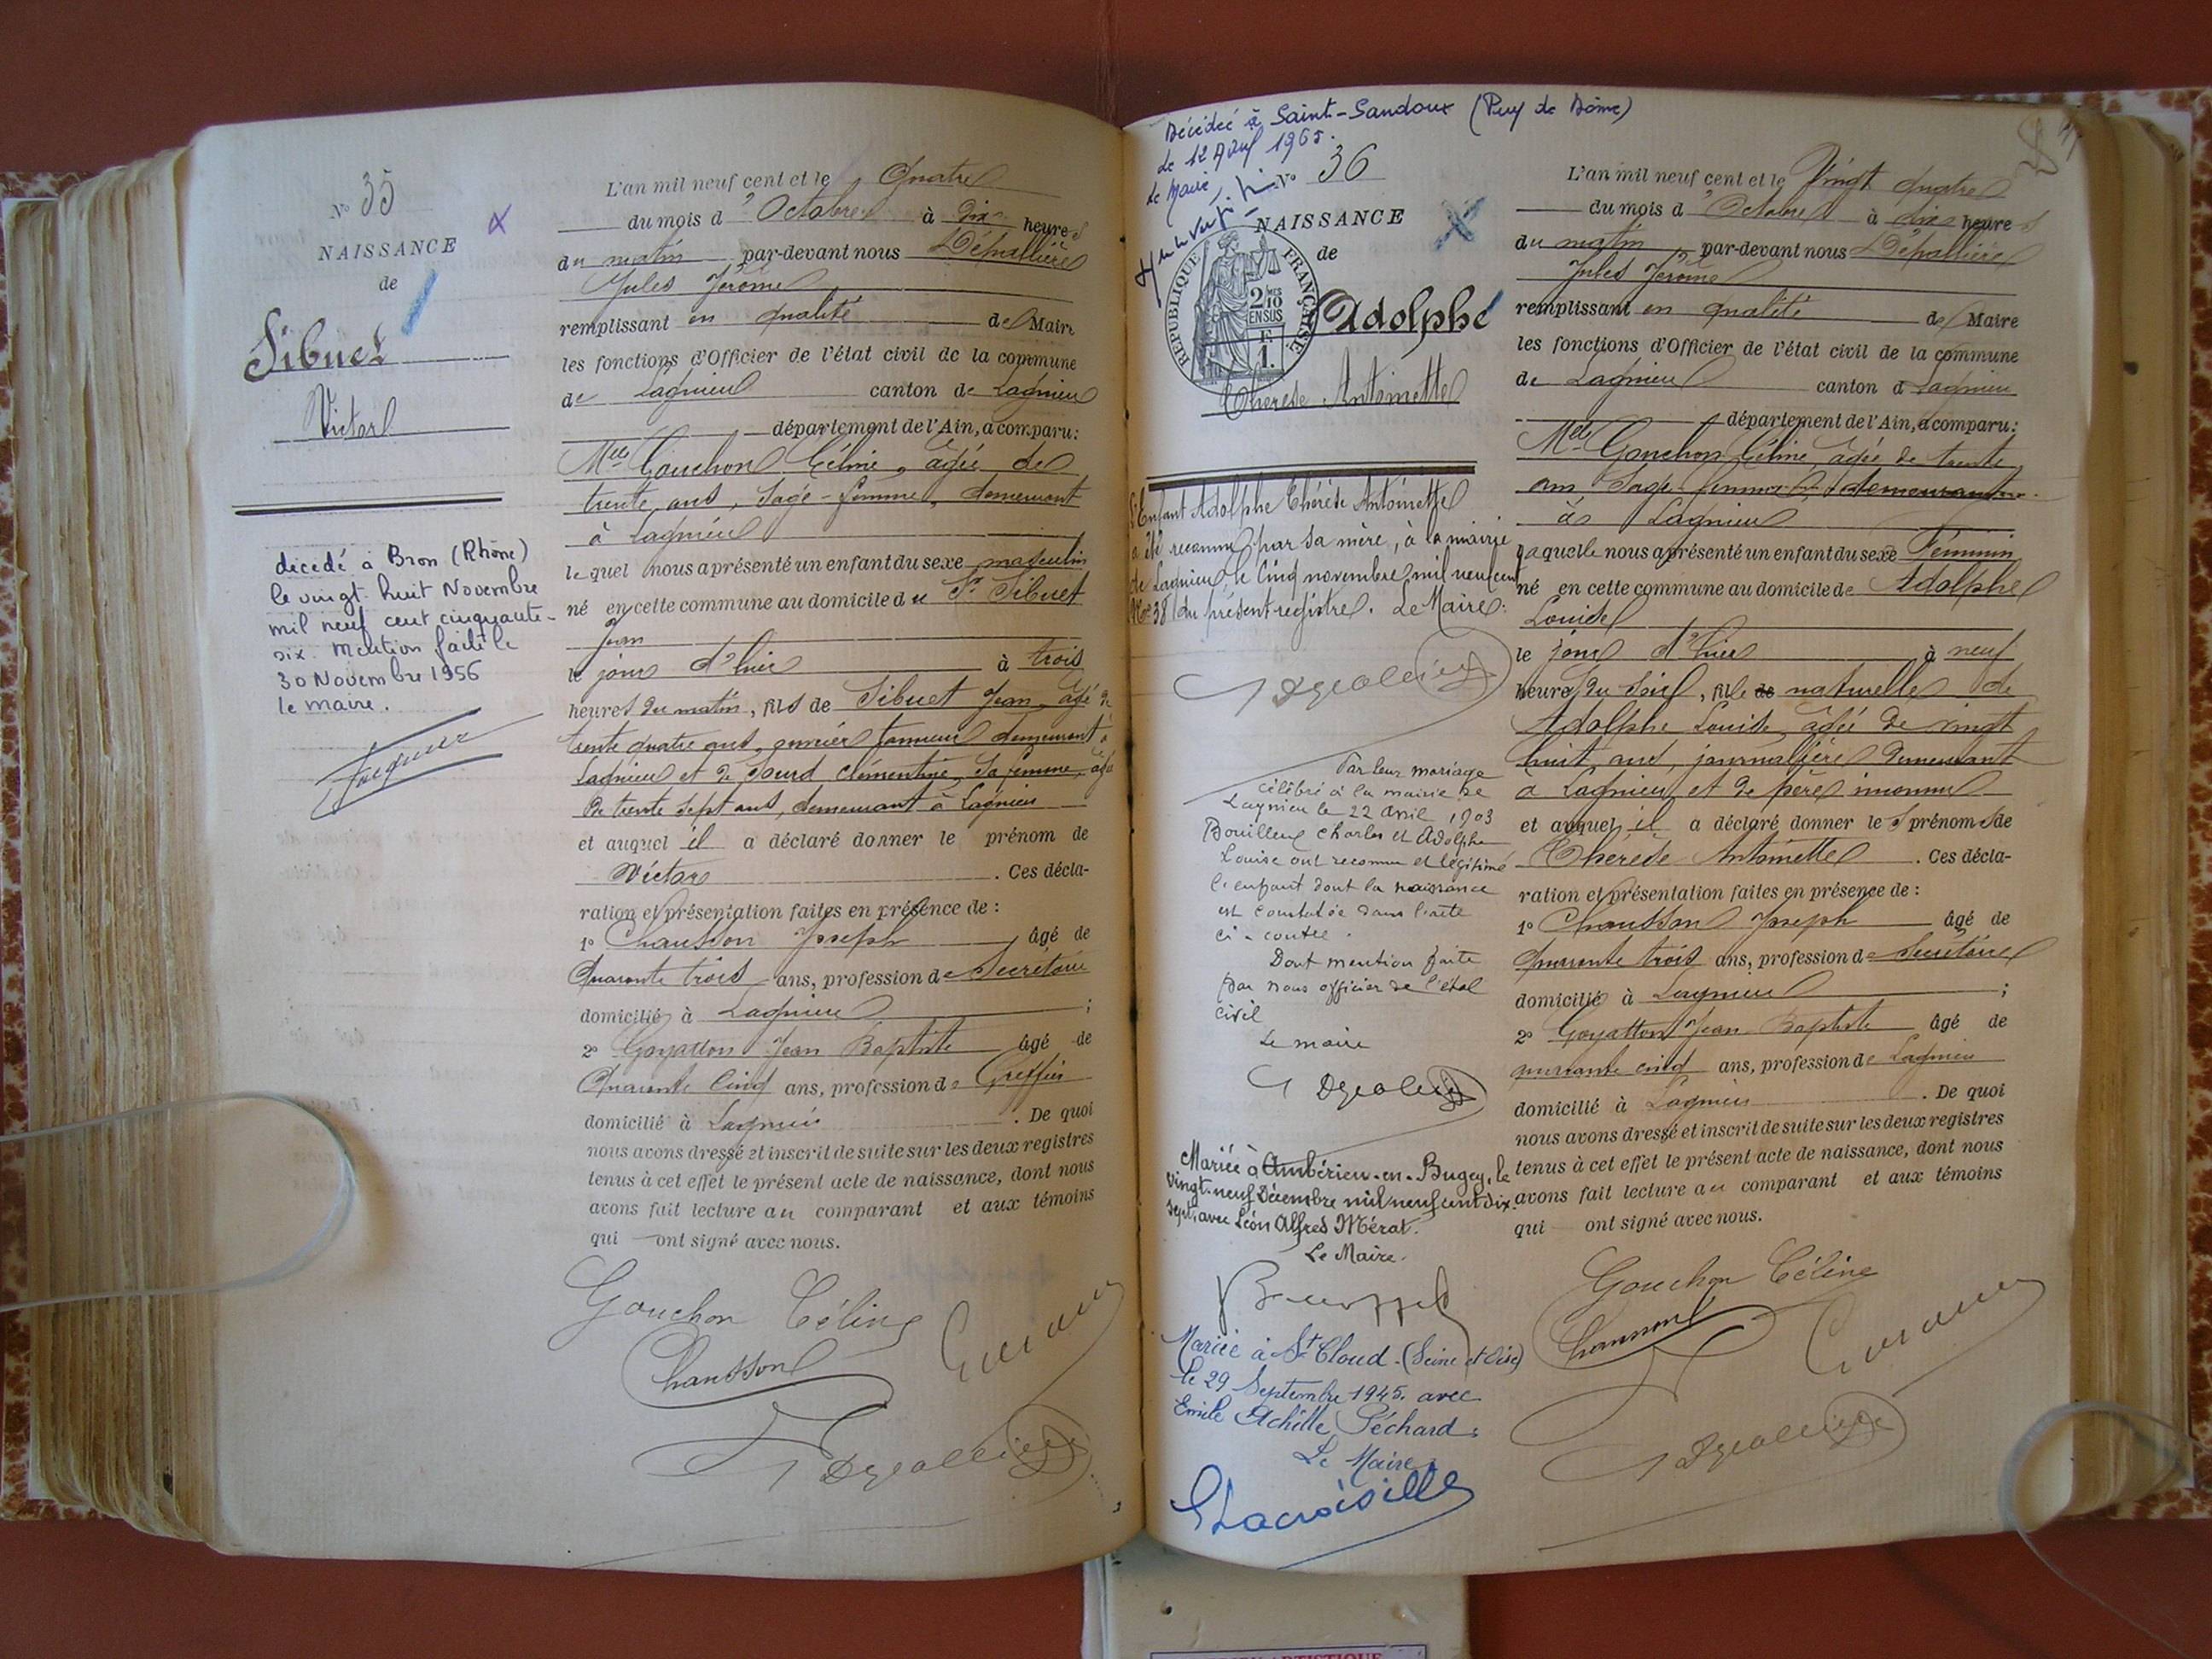 N° 35
NAISSANCE
de
Sibuet
Victor
décédé à Bron (Rhône)
le vingt-huit Novembre
mil neuf cent cinquante-
six. Mention faite le
30 Novembre 1956
le maire.
L'an mil neuf cent et le Quatre
du mois d' Octobre à dix heures
du matin par-devant nous Dépallière
Jules Jérôme
remplissant en qualité de Maire
les fonctions d'Officier de l'état civil de la commune
de Lagnieu canton de Lagnieu
département de l'Ain, a comparu:
Mlle Gouchon Céline, âgée de
trente ans, Sage-femme, demeurant
à Lagnieu
lequel nous a présenté un enfant du sexe masculin
né en cette commune au domicile du Sr Sibuet
Jean
le jour d'hier à trois
heures du matin, fils de Sibuet Jean, âgé de
trente quatre ans, ouvrier tanneur demeurant à
Lagnieu et de Sourd Clémentine, sa femme, âgée
de trente sept ans, demeurant à Lagnieu
et auquel il a déclaré donner le prénom de
Victor . Ces décla-
ration et présentation faites en présence de :
1° Chausson Joseph , âgé de
Quarante trois ans, profession de Secrétaire
domicilié à Lagnieu ;
2° Goyatton Jean Baptiste âgé de
Quarante Cinq ans, profession de Greffier
domicilié à Lagnieu . De quoi
nous avons dressé et inscrit de suite sur les deux registres
tenus à cet effet le présent acte de naissance, dont nous
avons fait lecture au comparant et aux témoins
qui ont signé avec nous.
Gouchon Céline
Chausson
Décédée à Saint-Sandoux (Puy de Dôme)
le 12 Avril 1965.
Le Maire,
N° 36
NAISSANCE
de
REPUBLIQUE FRANÇAISE
2/10
EN SUS
F.
1.
Adolphe
Thérèse Antoinette
L'Enfant Adolphe Thérèse Antoinette
a été reconnu par sa mère, à la mairie
de Lagnieu, le Cinq novembre mil neuf cent
N° 38 du présent registre. Le Maire:
Par leur mariage
célébré à la mairie de
Lagnieu le 22 avril 1903
Bouilleux Charles et Adolphe
Louise ont reconnu et légitimé
l'enfant dont la naissance
est constatée dans l'acte
ci-contre.
Dont mention faite
par nous officier de l'état
civil
Le maire
Mariée à Ambérieu-en-Bugey, le
vingt-neuf Décembre mil neuf cent dix-
sept, avec Léon Alfred Mérat.
Le Maire.
Mariée à St Cloud (Seine et Oise)
le 29 Septembre 1945. avec
Emile Achille Péchard.
Le Maire,
Lacroisille
L'an mil neuf cent et le Vingt quatre
du mois d' Octobre à dix heures
du matin par-devant nous Dépallière
Jules Jérôme
remplissant en qualité de Maire
les fonctions d'Officier de l'état civil de la commune
de Lagnieu canton d Lagnieu
département de l'Ain, a comparu:
Mlle Gouchon Céline âgée de trente
ans Sage-femme demeurant
à Lagnieu
laquelle nous a présenté un enfant du sexe Féminin
né en cette commune au domicile de Adolphe
Louise
le jour d'hier à neuf
heures du soir, fille de naturelle de
Adolphe Louise, âgée de vingt
huit ans, journalière demeurant
à Lagnieu et de père inconnu
et auquel il a déclaré donner les prénoms de
Thérèse Antoinette . Ces décla-
ration et présentation faites en présence de :
1° Chausson Joseph âgé de
quarante trois ans, profession de Secrétaire
domicilié à Lagnieu ;
2° Goyatton Jean Baptiste âgé de
quarante cinq ans, profession de Lagnieu
domicilié à Lagnieu . De quoi
nous avons dressé et inscrit de suite sur les deux registres
tenus à cet effet le présent acte de naissance, dont nous
avons fait lecture au comparant et aux témoins
qui ont signé avec nous.
Gouchon Céline
Chausson